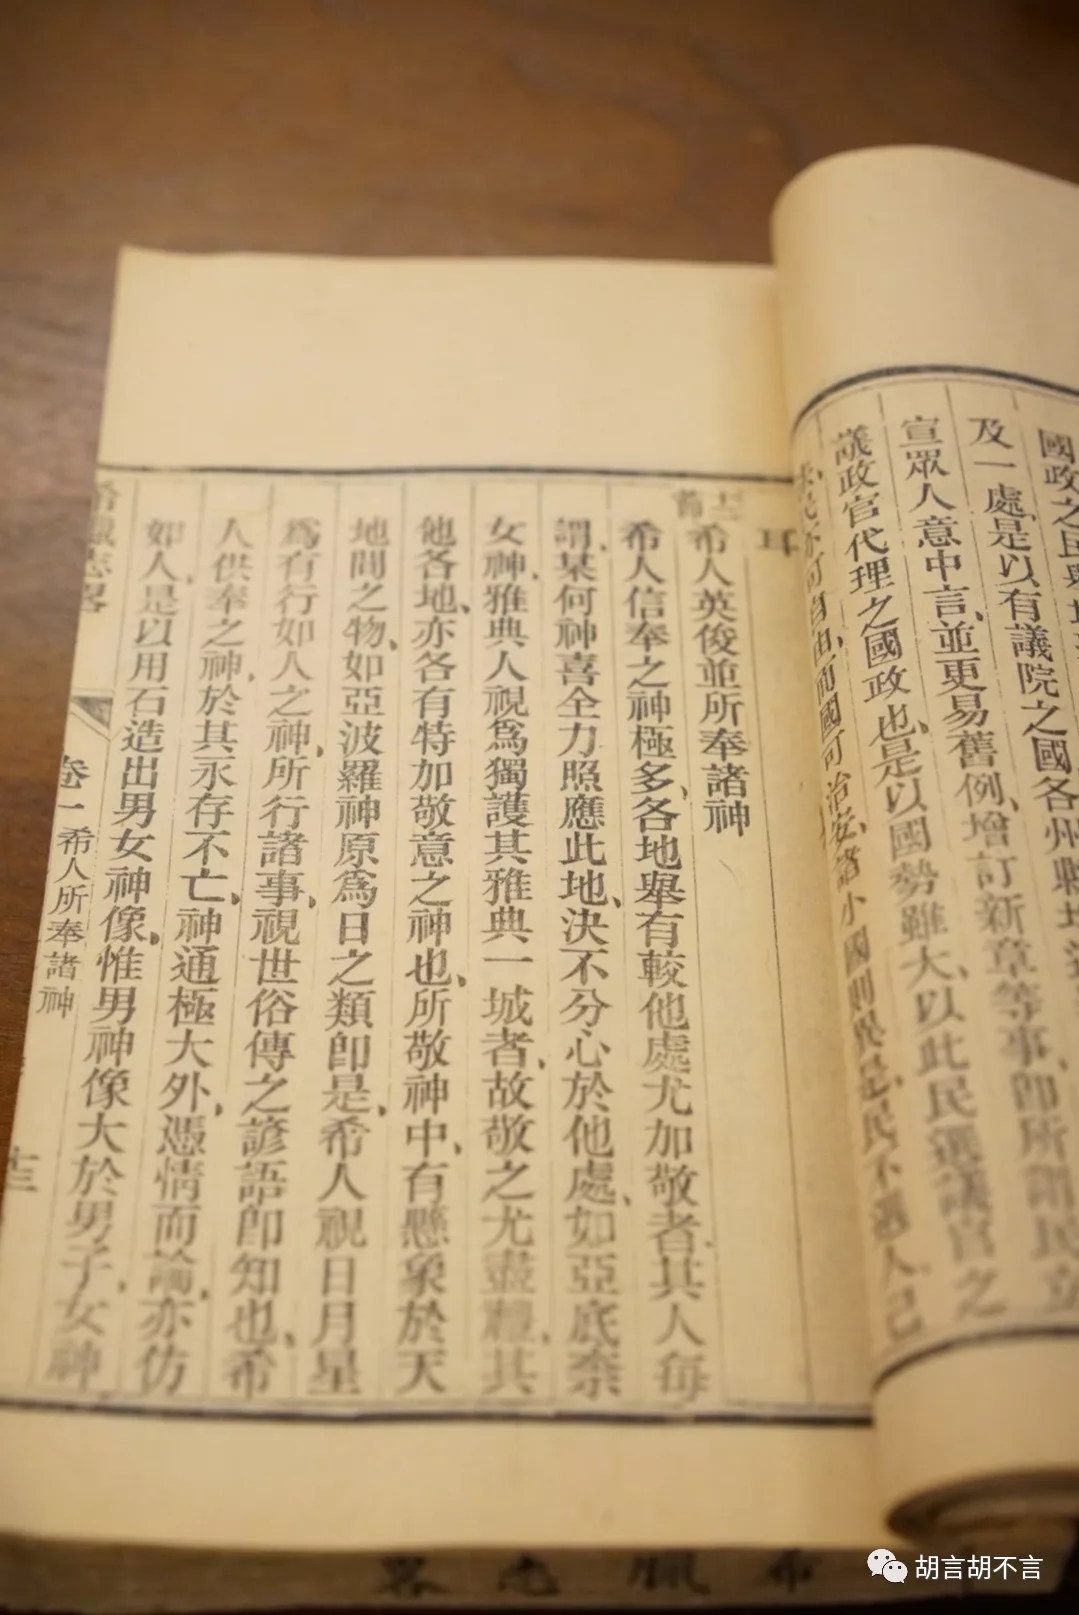 國政之民與地
及一處、是以有議院之國、各州縣地
宣眾人意中言、並更易舊例、增訂新章等事、即所謂民立
議政官代理之國政也、是以國勢雖大、以此民選議官之
民亦可自由、而國可治安、諸小國則異是、民不選人、己
耳
十二節
希人英俊並所奉諸神
希人信奉之神極多、各地舉有較他處尤加敬者、其人每
謂、某何神喜全力照應此地、決不分心於他處、如亞底柰
女神、雅典人視爲獨護其雅典一城者、故敬之尤盡禮、其
他各地、亦各有特加敬意之神也、所敬神中、有懸象於天
地間之物、如亞波羅神原爲日之類即是、希人視日月星
爲有行如人之神、所行諸事、視世俗傳之諺語即知也、希
人供奉之神、於其永存不亡、神通極大外、憑情而論、亦仿
如人、是以用石造出男女神像、惟男神像大於男子、女神
希臘志畧
卷一 希人所奉諸神
十三
希臘志畧
胡言胡不言